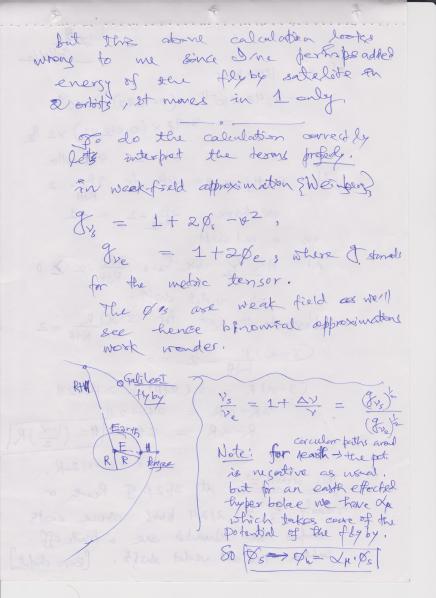 but this above calculation looks
wrong to me since I've perhaps added
energy of the flyby satelite in
2 orbits, it moves in 1 only.
To do the calculation correctly
let's interpret the terms properly.
in weak field approximation {Weinberg}
g_νs = 1 + 2φ_s - v²,
g_νe = 1 + 2φ_e, where g stands
for the metric tensor.
The φ's are weak field as we'll
see hence binomial approximations
work wonder.
R+H
Galileo I
flyby
Earth
E
H
R
R
ν_s/ν_e = 1 + Δν/ν = (g_νs)^½/(g_νe)^½
Note: for circular paths around
earth → the pot.
is negative as usual.
but for an earth effected
hyperbolae we have α_μ
which takes care of the
potential of the flyby.
So φ_s → φ_μ = α_μ·φ_s